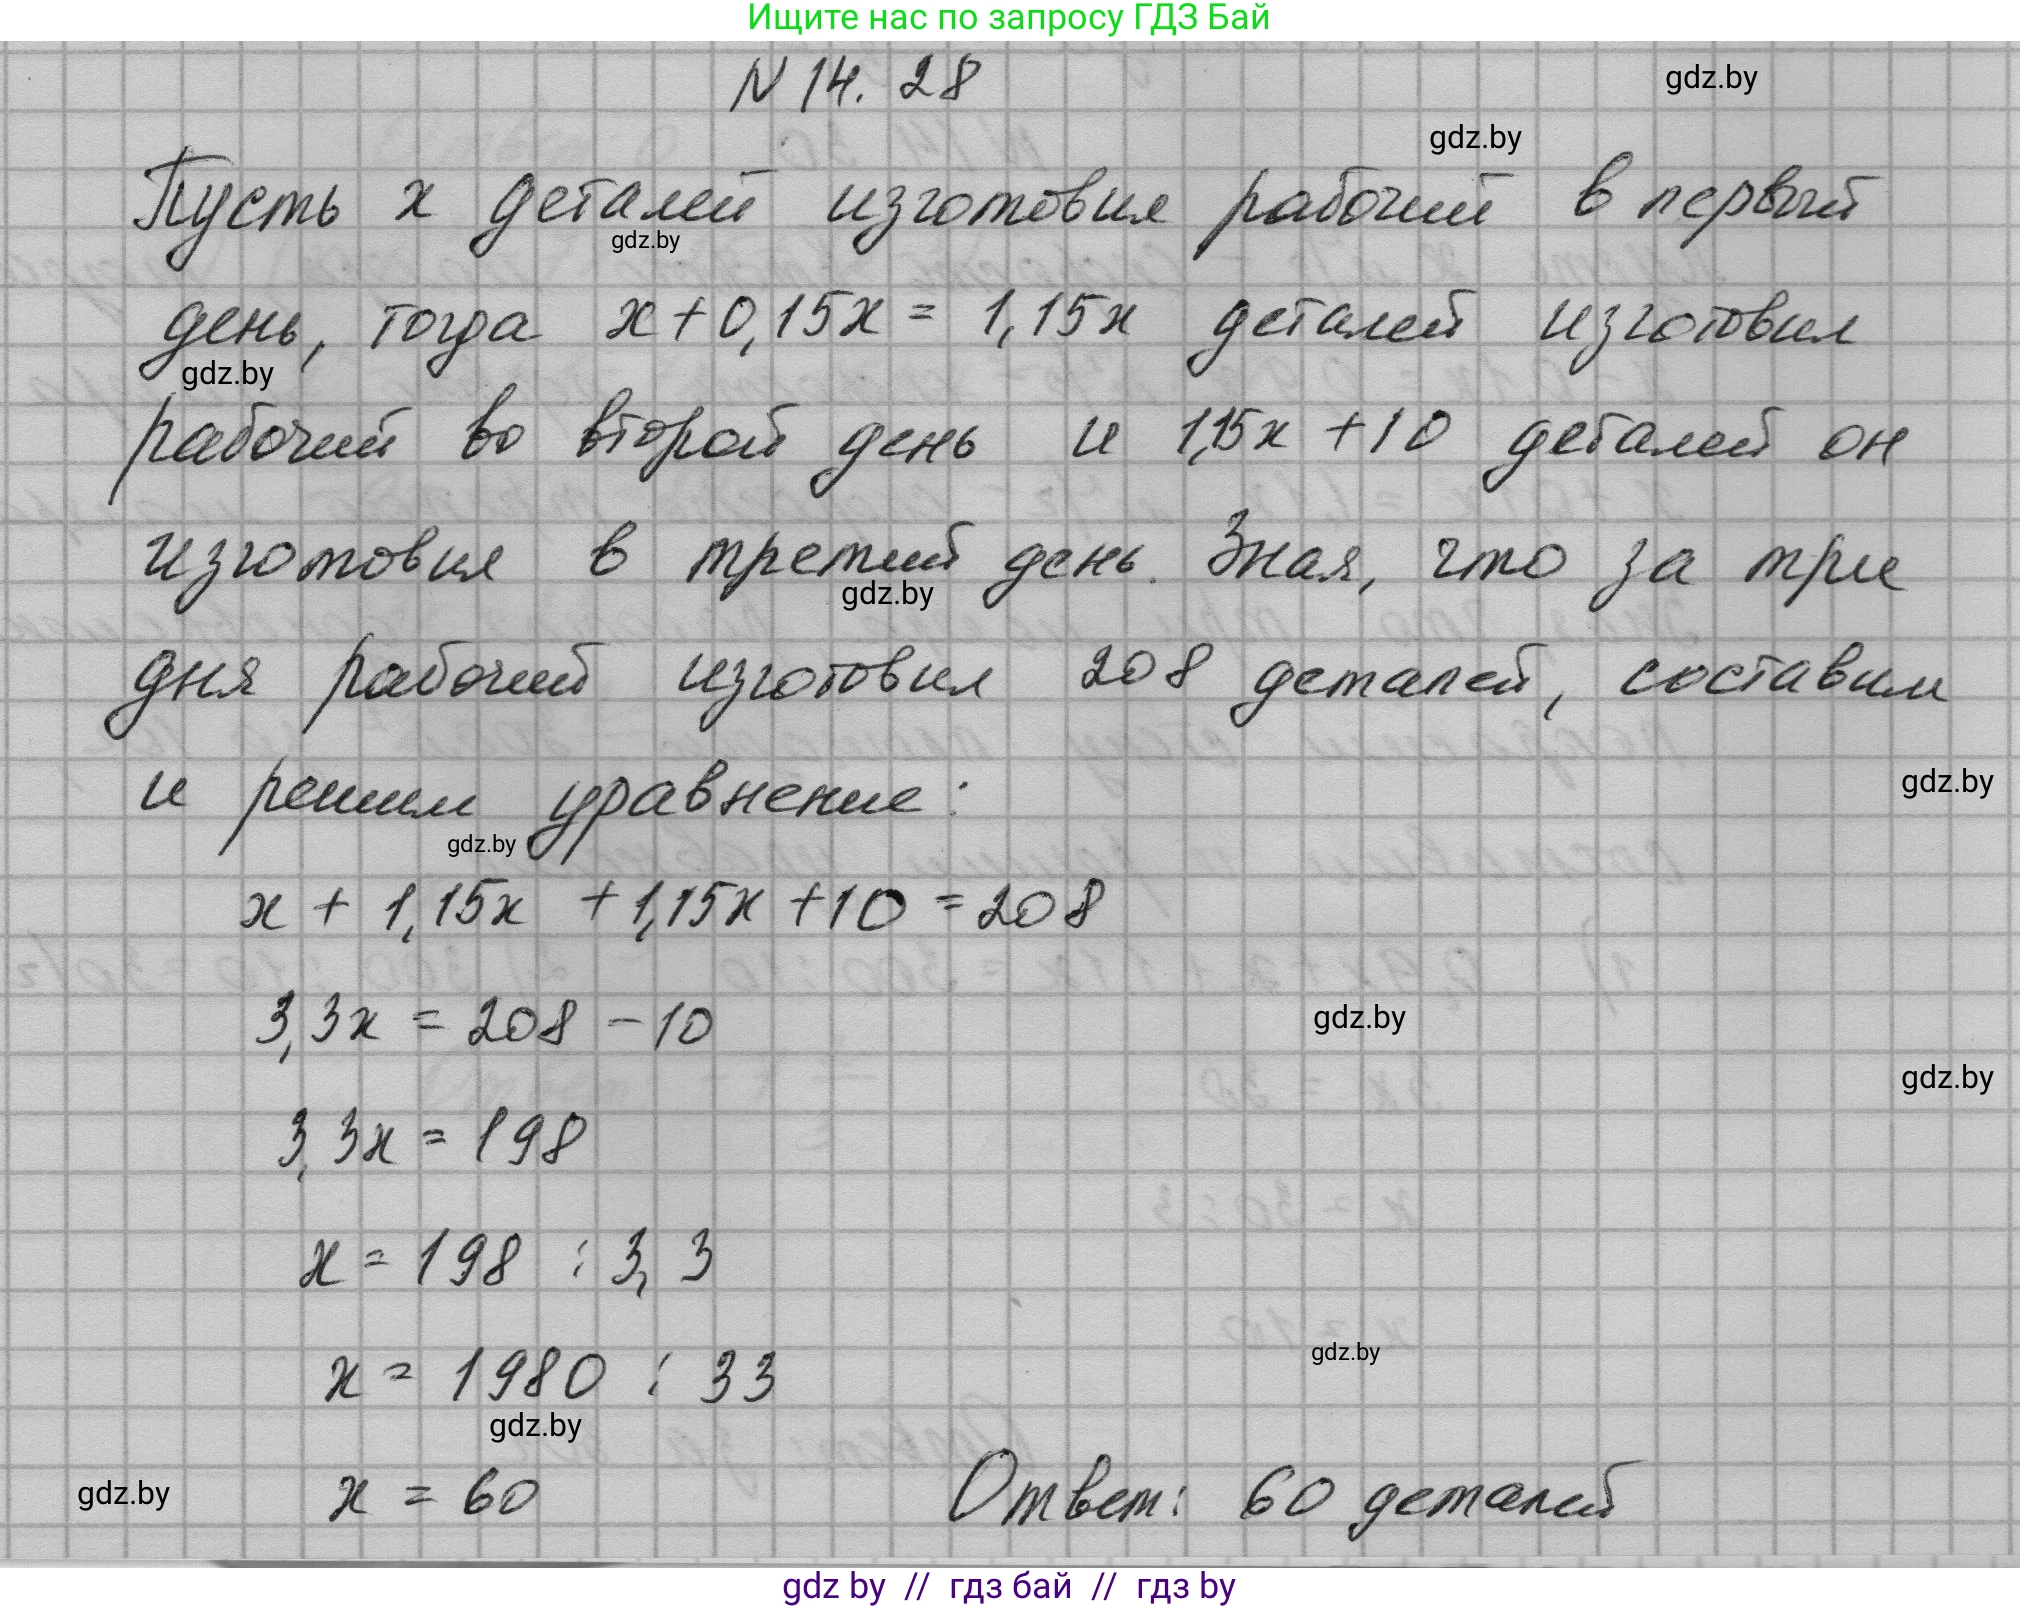 Ищите нас по запросу ГДЗ Бай
N 14.28
gdz.by
gdz.by
Пусть x деталей изготовил рабочий в первый
gdz.by
день, тогда x+0,15x = 1,15x деталей изготовил
gdz.by
рабочий во второй день и 1,15x +10 деталей он
изготовил в третий день. Зная, что за три
gdz.by
дня рабочий изготовил 208 деталей, составим
и решим уравнение:
gdz.by
gdz.by
x + 1,15x +1,15x +10 = 208
3,3x = 208 - 10
gdz.by
gdz.by
3,3x = 198
x = 198 : 3,3
gdz.by
x = 1980 : 33
gdz.by
gdz.by
x = 60 Ответ: 60 деталей
gdz by // гдз бай // гдз by